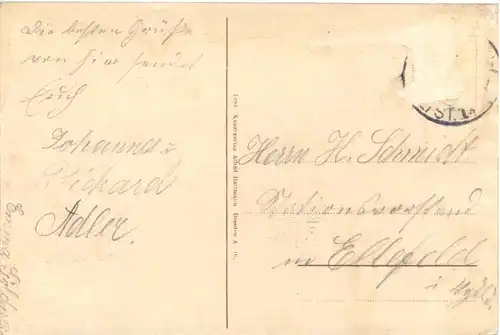 Die besten Grüße
von hier sendet
Euch
Johanna u
Richard
Adler.
Herrn H. Schmidt
Stationsvorstand
in Ellefeld
i Vgtl.
Kunstverlag Alfred Hartmann, Dresden A 16.